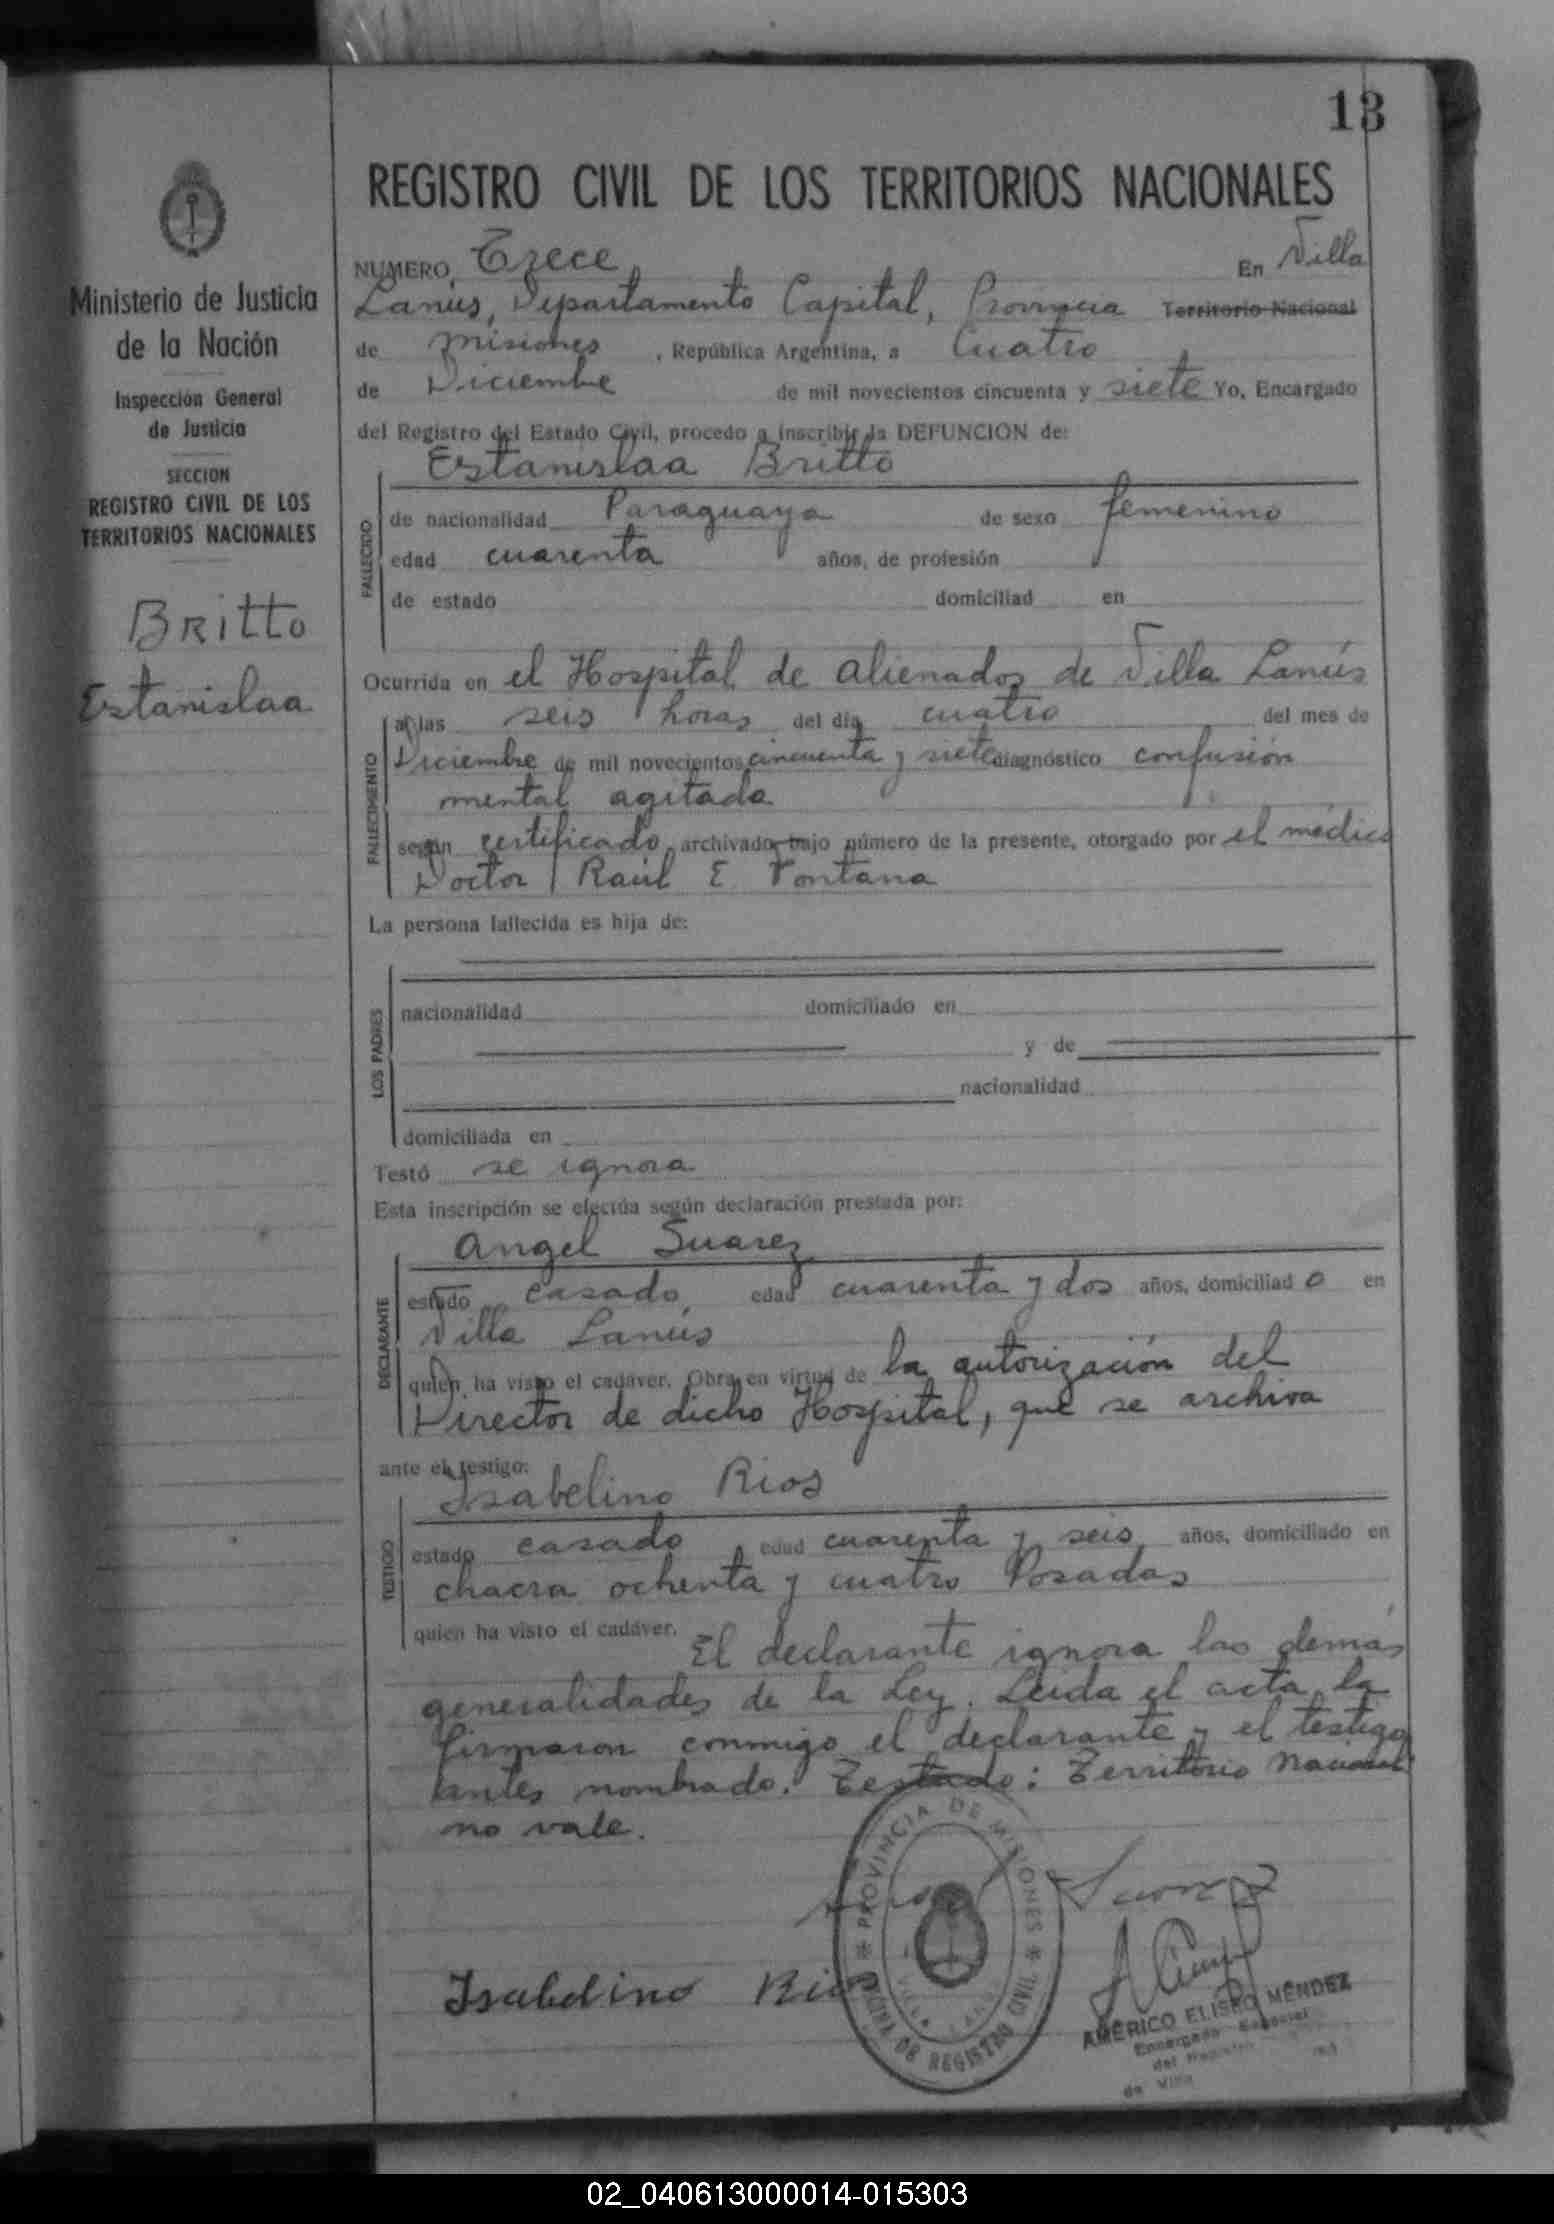 13
REGISTRO CIVIL DE LOS TERRITORIOS NACIONALES
Ministerio de Justicia
de la Nación
Inspección General
de Justicia
SECCION
REGISTRO CIVIL DE LOS
TERRITORIOS NACIONALES
Britto
Estanislaa
NUMERO Trece En Villa
Lanús, Departamento Capital, Provincia Territorio Nacional
de Misiones, República Argentina, a Cuatro
de Diciembre de mil novecientos cincuenta y siete Yo, Encargado
del Registro del Estado Civil, procedo a inscribir la DEFUNCION de:
Estanislaa Britto
FALLECIDO
de nacionalidad Paraguaya de sexo femenino
edad cuarenta años, de profesión
de estado domiciliad en
Ocurrida en el Hospital de Alienados de Villa Lanús
FALLECIMIENTO
a las seis horas del día cuatro del mes de
Diciembre de mil novecientos cincuenta y siete diagnóstico confusión
mental agitada
según certificado archivado bajo número de la presente, otorgado por el médico
Doctor Raúl E Fontana
La persona fallecida es hija de:
LOS PADRES
nacionalidad domiciliado en
y de
nacionalidad
domiciliada en
Testó se ignora
Esta inscripción se efectúa según declaración prestada por:
Angel Suarez
DECLARANTE
estado casado edad cuarenta y dos años, domiciliad o en
Villa Lanús
quien ha visto el cadáver. Obra en virtud de la autorización del
Director de dicho Hospital, que se archiva
ante el testigo:
Isabelino Rios
TESTIGO
estado casado edad cuarenta y seis años, domiciliado en
chacra ochenta y cuatro Posadas
quien ha visto el cadáver. El declarante ignora las demás
generalidades de la Ley. Leida el acta la
firmaron conmigo el declarante y el testigo
antes nombrado. Testado: Territorio Nacional
no vale.
PROVINCIA DE MISIONES
OFICINA DE REGISTRO CIVIL
VILLA LANUS
Suarez
Isabelino Rios
AMÉRICO ELISEO MÉNDEZ
Encargado Especial
del Registro
de Villa
02_040613000014-015303